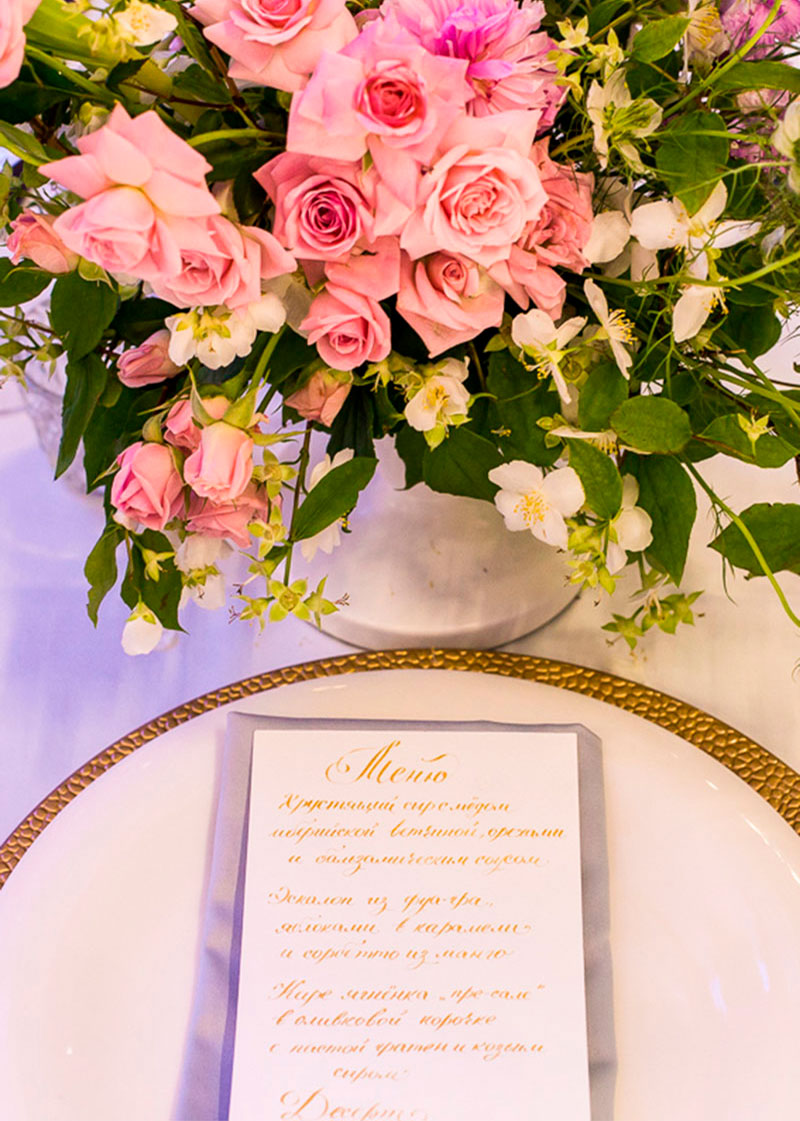 Меню
Хрустящий сыр с мёдом
иберийской ветчиной, орехами
и бальзамическим соусом
Эскалоп из фуа-гра,
яблоками в карамели
и сорбетто из манго
Каре ягнёнка „пре-сале"
в оливковой корочке
с пастой фатен и козьим
сыром
Десерт